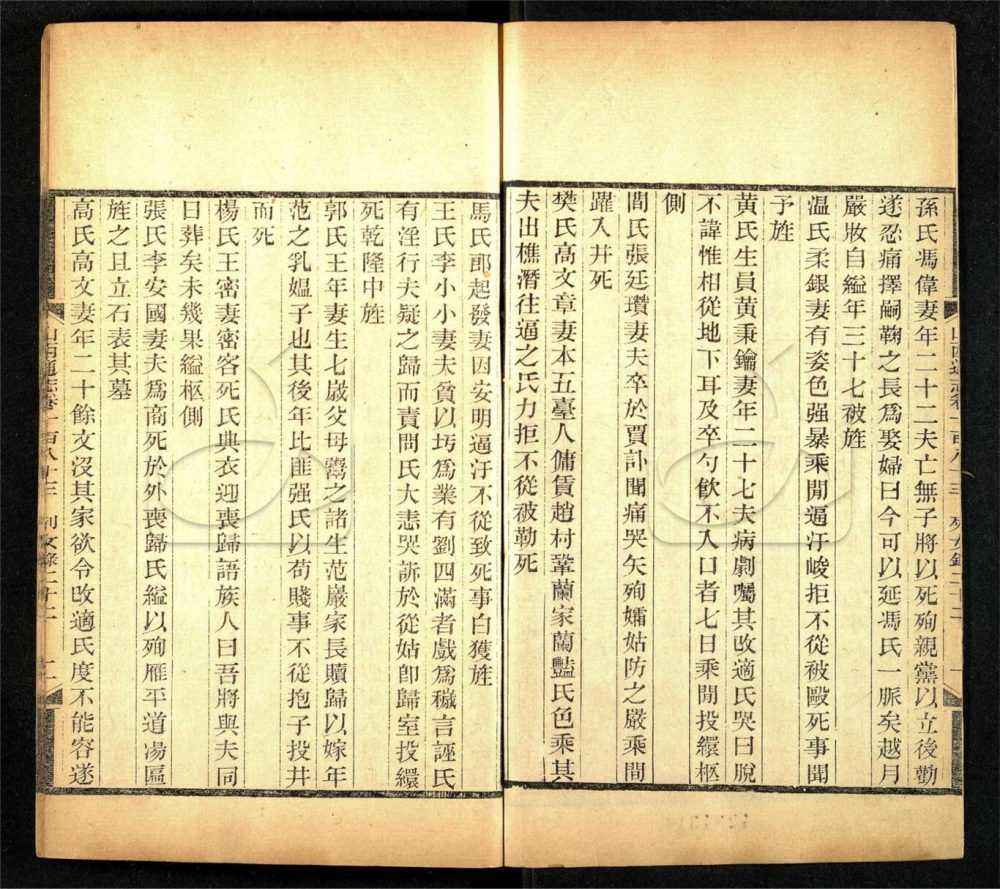 孫氏馮偉妻年二十二夫亡無子將以死殉親黨以立後勸
遂忍痛擇嗣鞠之長爲娶婦曰今可以延馮氏一脈矣越月
嚴妝自縊年三十七被旌
溫氏柔銀妻有姿色强暴乘閒逼汙峻拒不從被毆死事聞
予旌
黃氏生員黃秉鑰妻年二十七夫病劇囑其改適氏哭曰脫
不諱惟相從地下耳及卒勺飮不入口者七日乘閒投繯柩
側
閻氏張廷瓚妻夫卒於賈訃聞痛哭矢殉孀姑防之嚴乘間
躍入井死
樊氏高文章妻本五臺人傭賃趙村鞏蘭家蘭豔氏色乘其
夫出樵潛往逼之氏力拒不從被勒死
馬氏郎起發妻因安明逼汙不從致死事白獲旌
王氏李小小妻夫貧以圬爲業有劉四滿者戲爲穢言誣氏
有淫行夫疑之歸而責問氏大恚哭訴於從姑卽歸室投繯
死乾隆中旌
郭氏王年妻生七歲父母鬻之諸生范嚴家長贖歸以嫁年
范之乳媼子也其後年比匪强氏以苟賤事不從抱子投井
而死
楊氏王密妻密客死氏典衣迎喪歸語族人曰吾將與夫同
日葬矣未幾果縊柩側
張氏李安國妻夫爲商死於外喪歸氏縊以殉雁平道湯扁
旌之且立石表其墓
高氏高文妻年二十餘文沒其家欲令改適氏度不能容遂
山西通志卷一百八十三 列女錄二十二